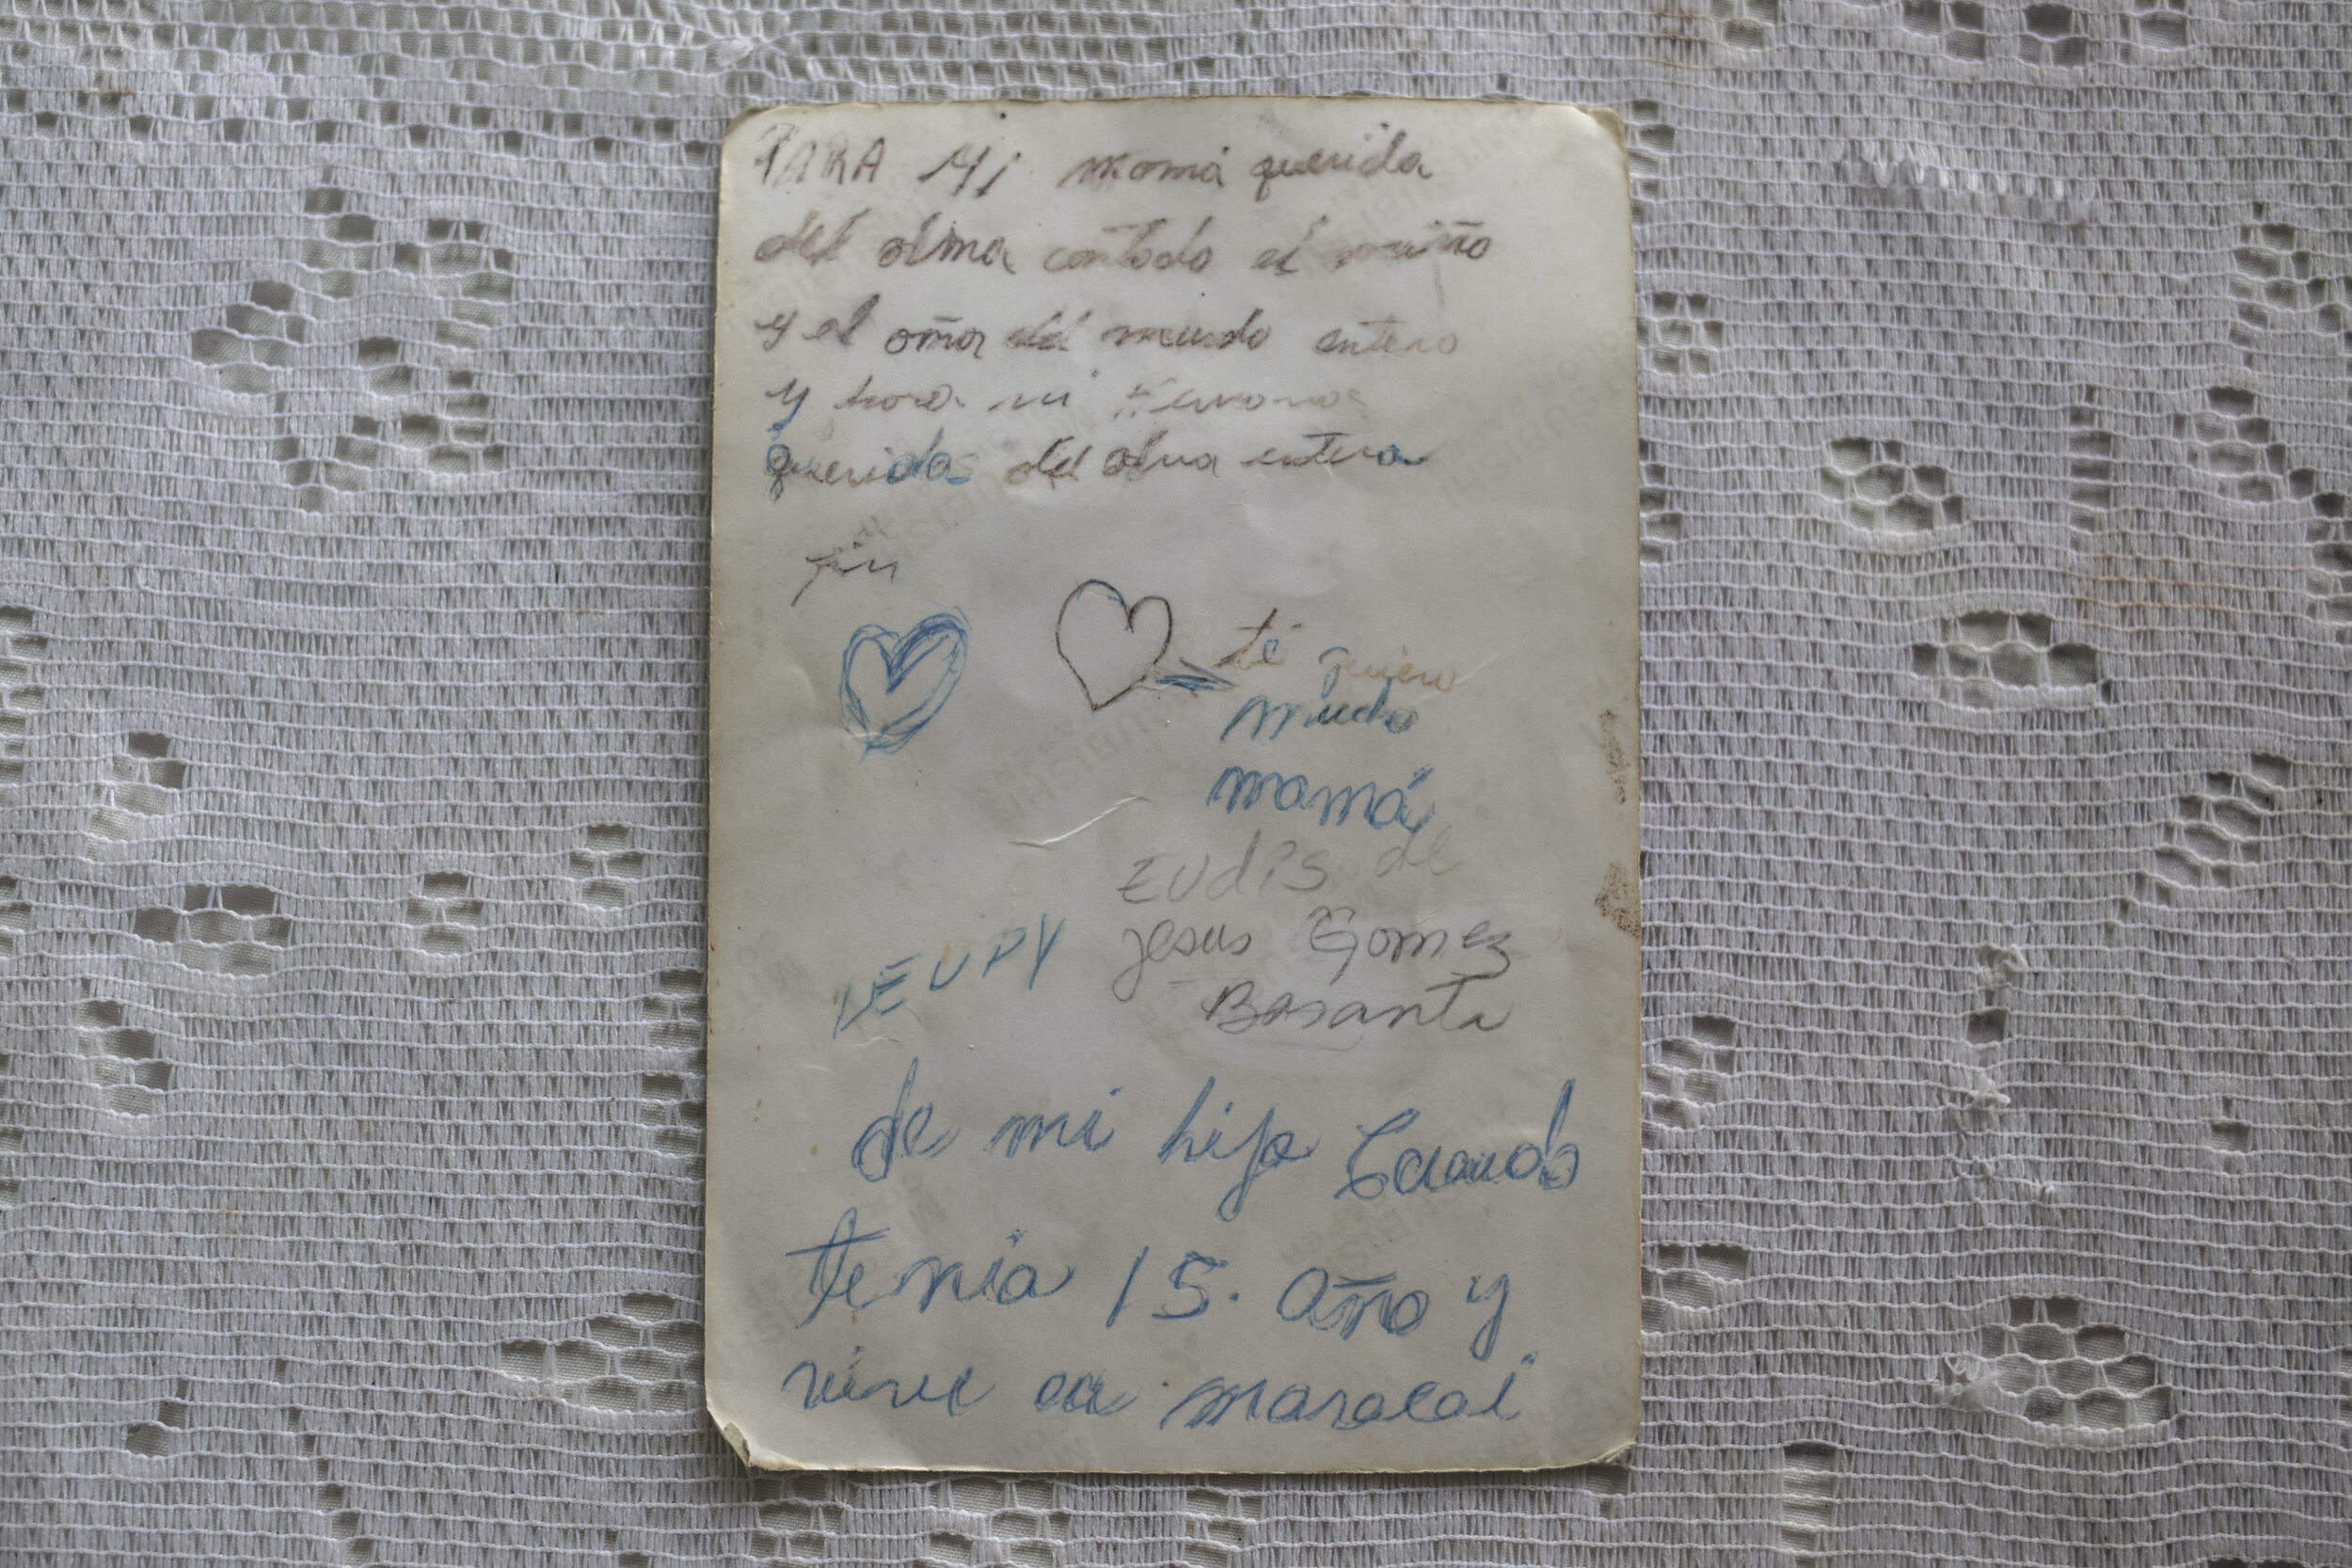 PARA Mi mamá querida
del alma contodo el cariño
y el amor del mundo entero
y para mi Hermanos
queridos del alma entera
fin
te quiero
mucho
mamá
EUdis de
Jesus Gomez
Basanta
DEUPY
de mi hijo Cuando
tenia 15. año y
vive en maracai